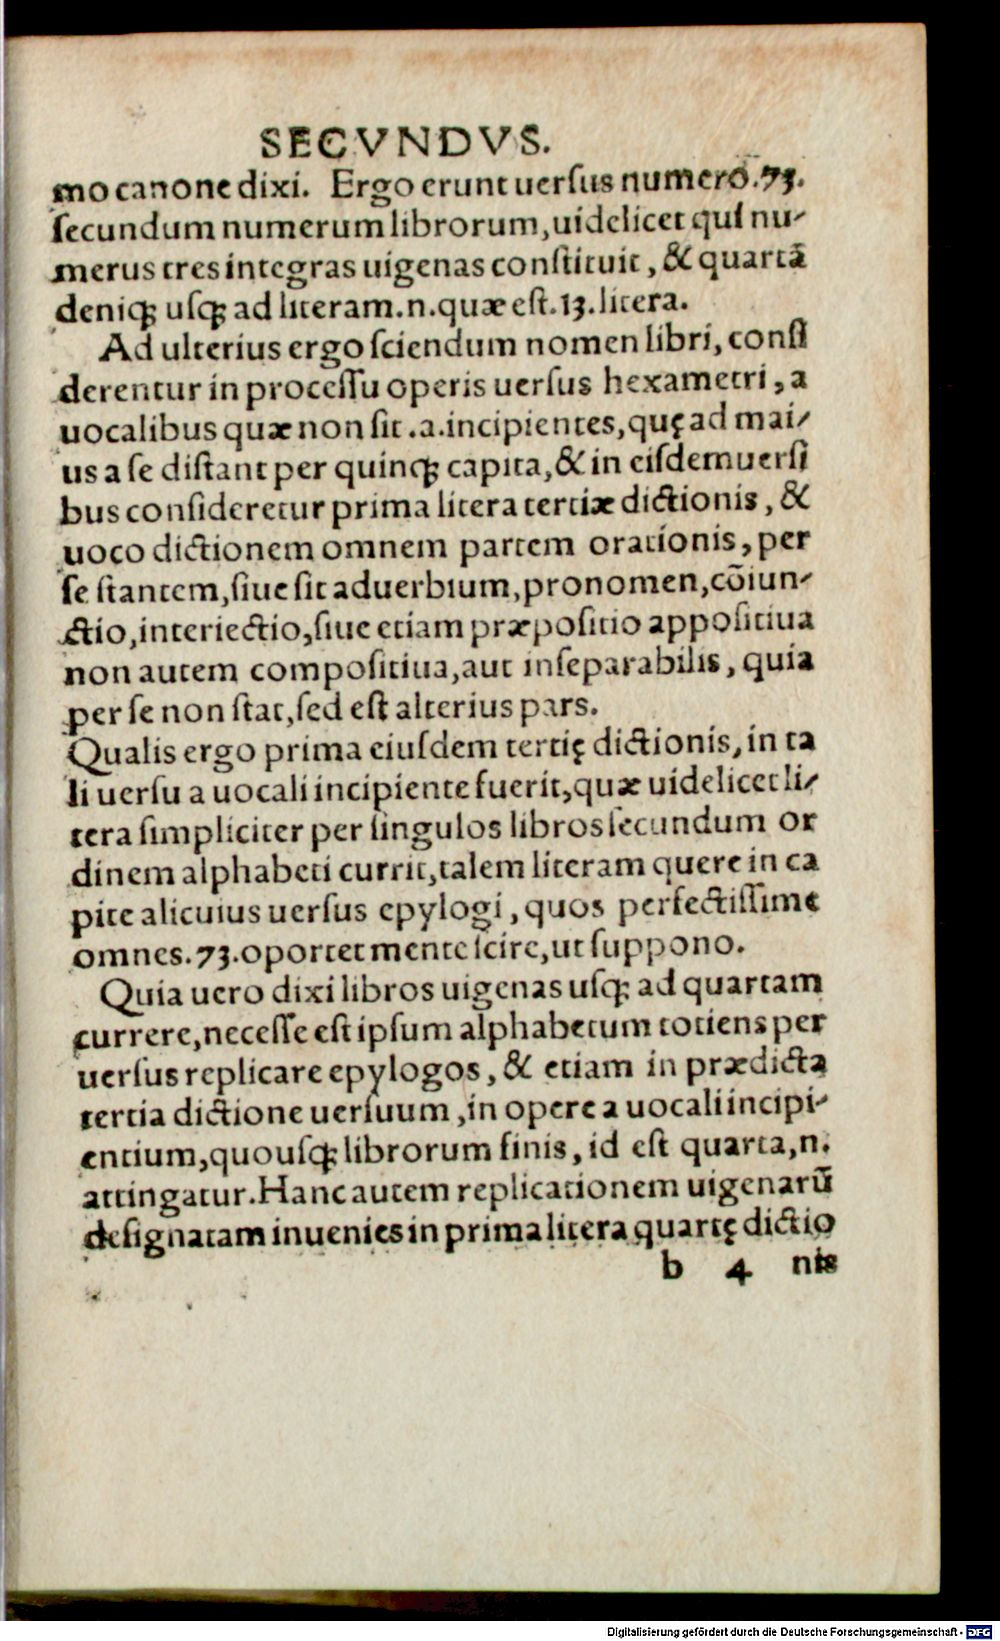 SECVNDVS.
mo canone dixi. Ergo erunt uersus numero.73.
secundum numerum librorum, uidelicet qui nu-
merus tres integras uigenas constituit, & quartā
deniq; usq; ad literam.n.quæ est.13.litera.
Ad ulterius ergo sciendum nomen libri, consi
derentur in processu operis uersus hexametri, a
uocalibus quæ non sit .a.incipientes, quę ad mai-
us a se distant per quinq; capita, & in eisdem uersi
bus consideretur prima litera tertiæ dictionis, &
uoco dictionem omnem partem orationis, per
se stantem, siue sit aduerbium, pronomen, cōiun-
ctio, interiectio, siue etiam præpositio appositiua
non autem compositiua, aut inseparabilis, quia
per se non stat, sed est alterius pars.
Qualis ergo prima eiusdem tertię dictionis, in ta
li uersu a uocali incipiente fuerit, quæ uidelicet li-
tera simpliciter per singulos libros secundum or
dinem alphabeti currit, talem literam quere in ca
pite alicuius uersus epylogi, quos perfectissime
omnes.73.oportet mente scire, ut suppono.
Quia uero dixi libros uigenas usq; ad quartam
currere, necesse est ipsum alphabetum totiens per
uersus replicare epylogos, & etiam in prædicta
tertia dictione uersuum, in opere a uocali incipi-
entium, quousq; librorum finis, id est quarta, n.
attingatur. Hanc autem replicationem uigenarū
designatam inuenies in prima litera quartę dictio
b 4 nis
Digitalisierung gefördert durch die Deutsche Forschungsgemeinschaft - DFG